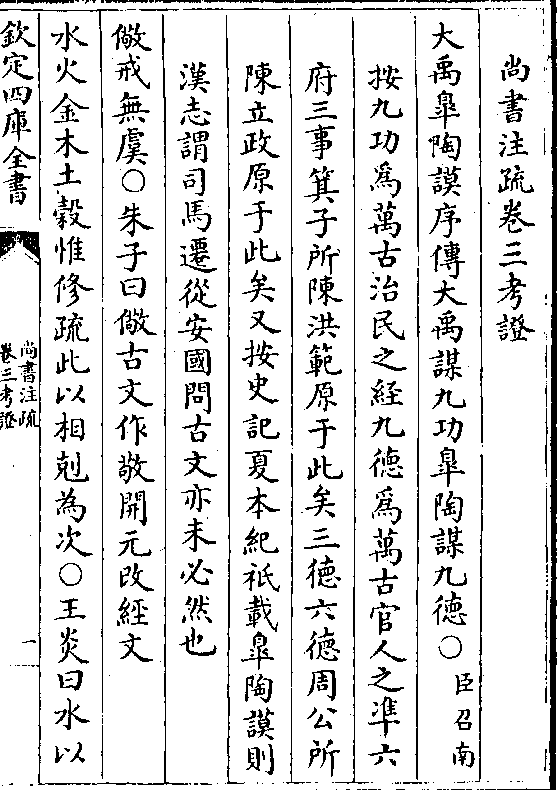 尚書注疏卷三考證
大禹臯陶謨序傳大禹謀九功臯陶謀九德〇臣召南
按九功爲萬古治民之經九德爲萬古官人之準六
府三事箕子所陳洪範原于此矣三德六德周公所
陳立政原于此矣又按史記夏本紀祇載臯陶謨則
漢志謂司馬遷從安國問古文亦未必然也
儆戒無虞〇朱子曰儆古文作敬開元改經文
水火金木土穀惟修疏此以相剋為次〇王炎曰水以
欽定四庫全書
尚書注疏
卷三考證
一